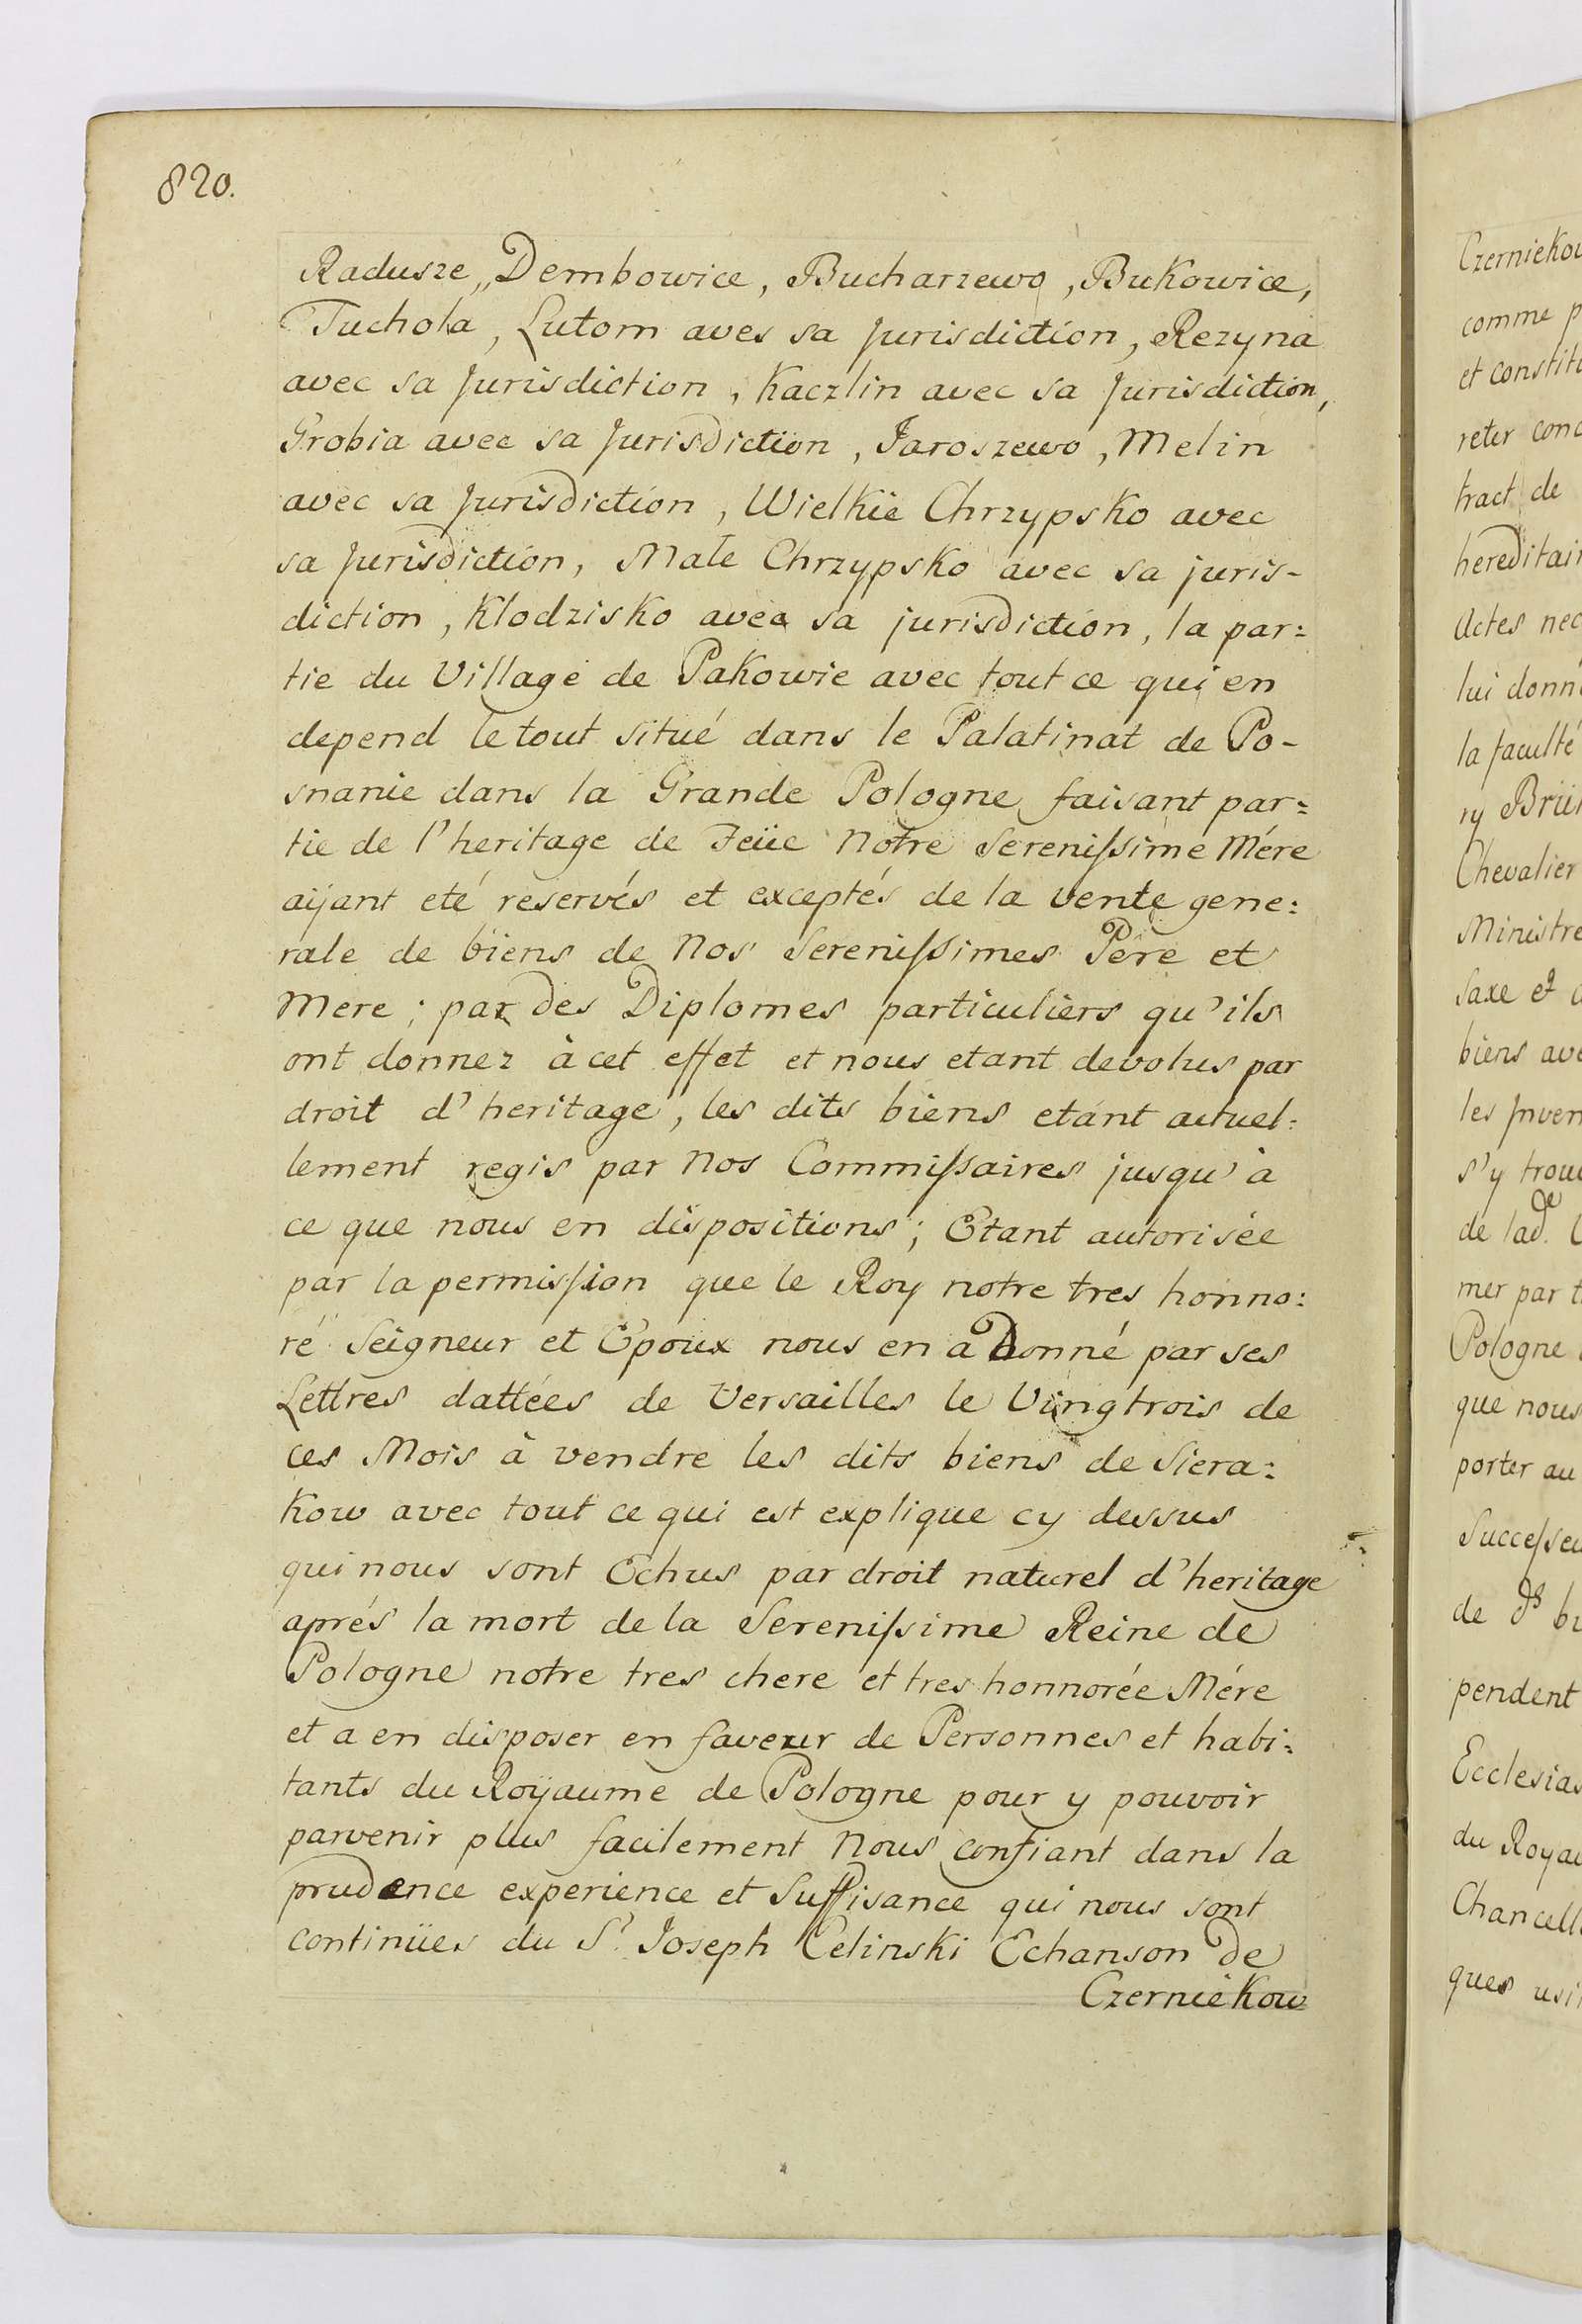 820.
Radusze,, Dembowice, Bucharzewo, Bukowice,
Tuchola, Lutom aves sa Jurisdiction, Rezyna
avec sa Jurisdiction, Kaczlin avec sa Jurisdiction,
Grobia avec sa Jurisdiction, Jaroszewo, Melin
avec sa Jurisdiction, Wielkie Chrzypsko avec
sa Jurisdiction, Małe Chrzypsko avec sa juris-
diction, Klodzisko avec sa jurisdiction, la par=
tie du Village de Pakowie avec tout ce qui en
depend le tout situé dans le Palatinat de Po-
snanie dans la Grande Pologne faisant par=
tie de l'heritage de Feüe Notre Serenissime Mére
aijant eté reservés et exceptés de la vente gene=
rale de biens de Nos Serenissimes Pére et
Mere; par des Diplomes particuliers qu'ils
ont donnez à cet effet et nous etant devolus par
droit d'heritage, les dits biens etant actuel=
lement regis par Nos Commissaires jusqu'à
ce que nous en dispositions; Etant autorisée
par la permission que le Roy notre tres honno=
ré Seigneur et Epoux nous en a Donné par ses
Lettres dattées de Versailles le Vingtrois de
ces Mois à vendre les dits biens de Siera=
kow avec tout ce qui est explique cy dessus
qui nous sont Echus par droit naturel d'heritage
aprés la mort de la Serenissime Reine de
Pologne notre tres chere et tres honnorée Mére
et a en disposer en faveur de Personnes et habi=
tants du Royaume de Pologne pour y pouvoir
parvenir plus facilement Nous confiant dans la
prudence experience et Suffisance qui nous sont
continües du Sr. Joseph Celinski Echanson de
Czerniekow
comme p
et constit
reter conc
tract de
hereditair
Actes nec
lui donn
la faculté
ry Brü
Chevalier
Ministre
Saxe et
biens ave
les Inven
s'y trou
de lad.e
mer par t
Pologne
que nous
porter au
Successeu
de ds bi
pendent
Ecclesias
du Royau
Chancell
ques usi